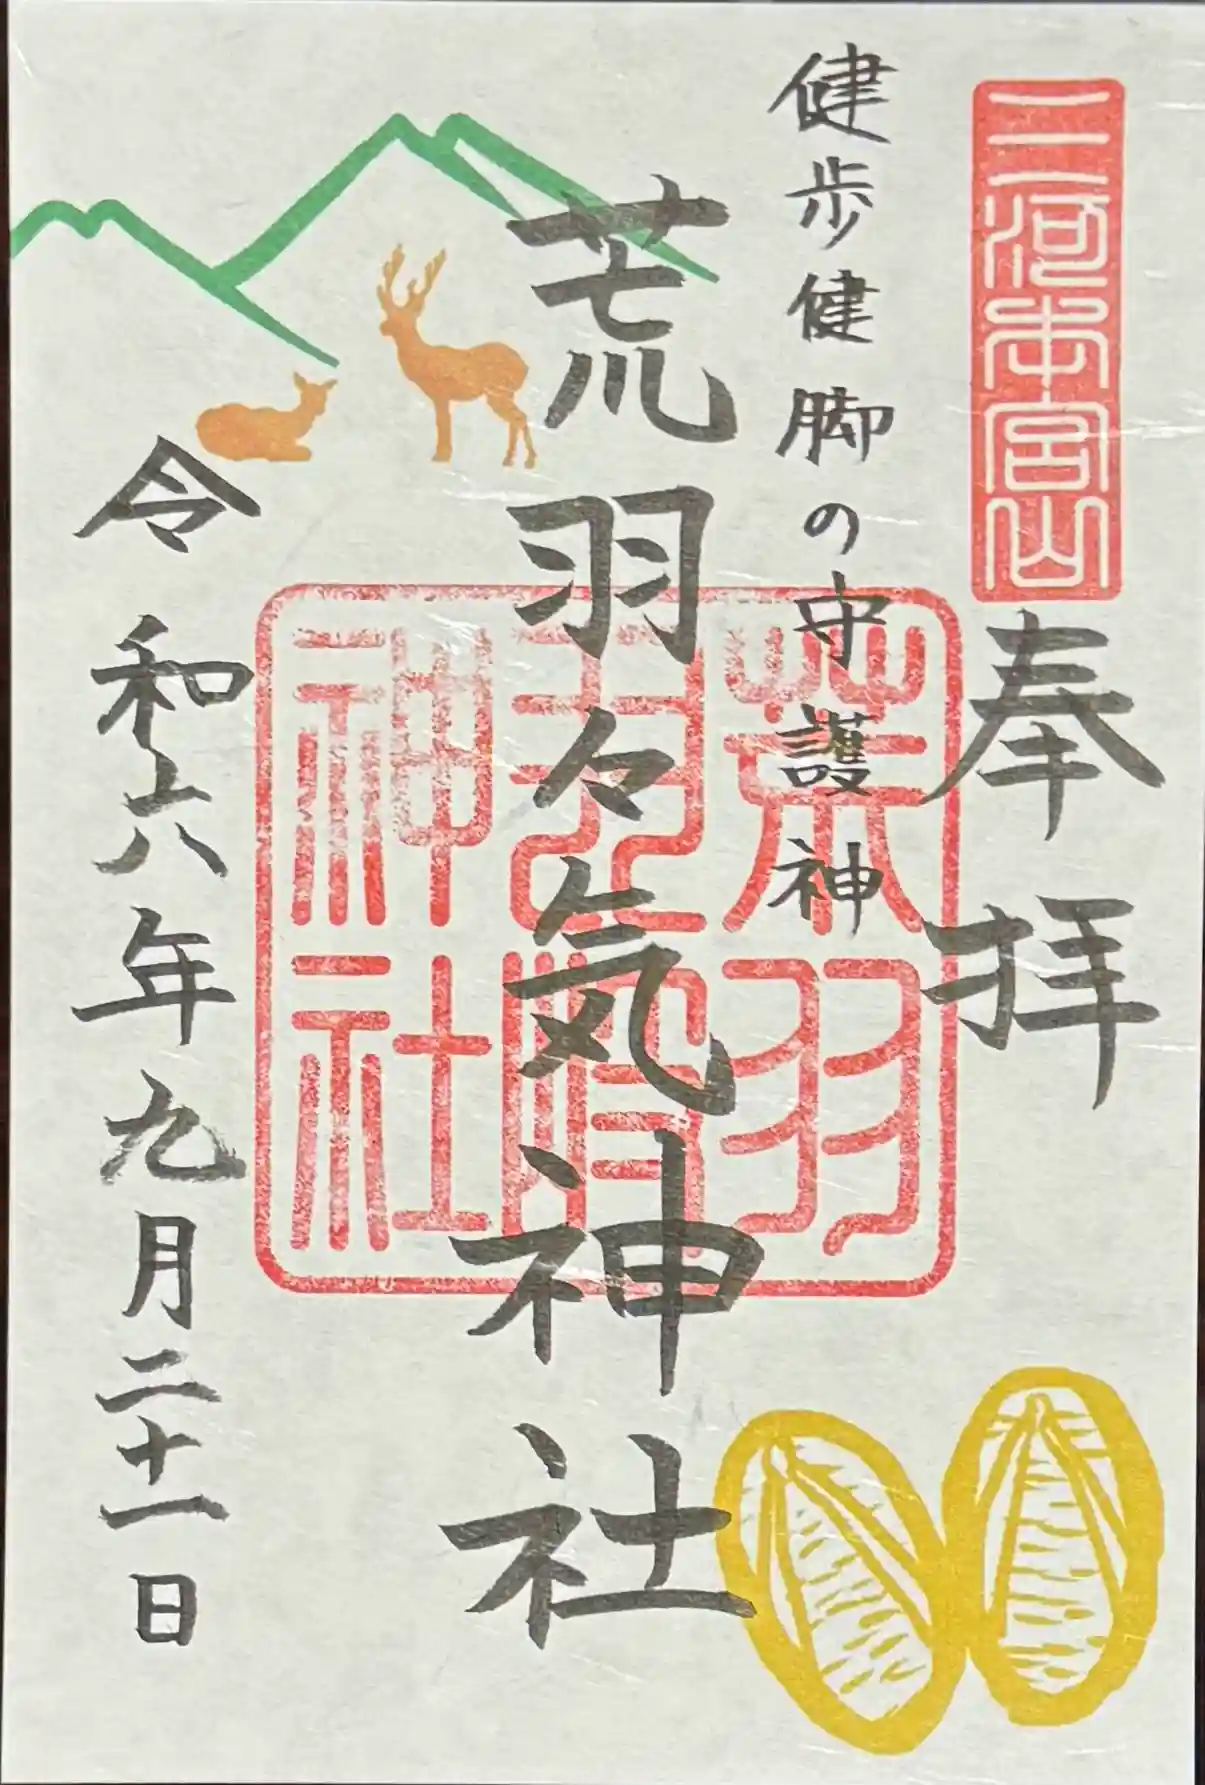 三河本宮山
奉拝
健歩健脚の守護神
荒羽々気神社
荒羽
神社
令和六年九月二十一日